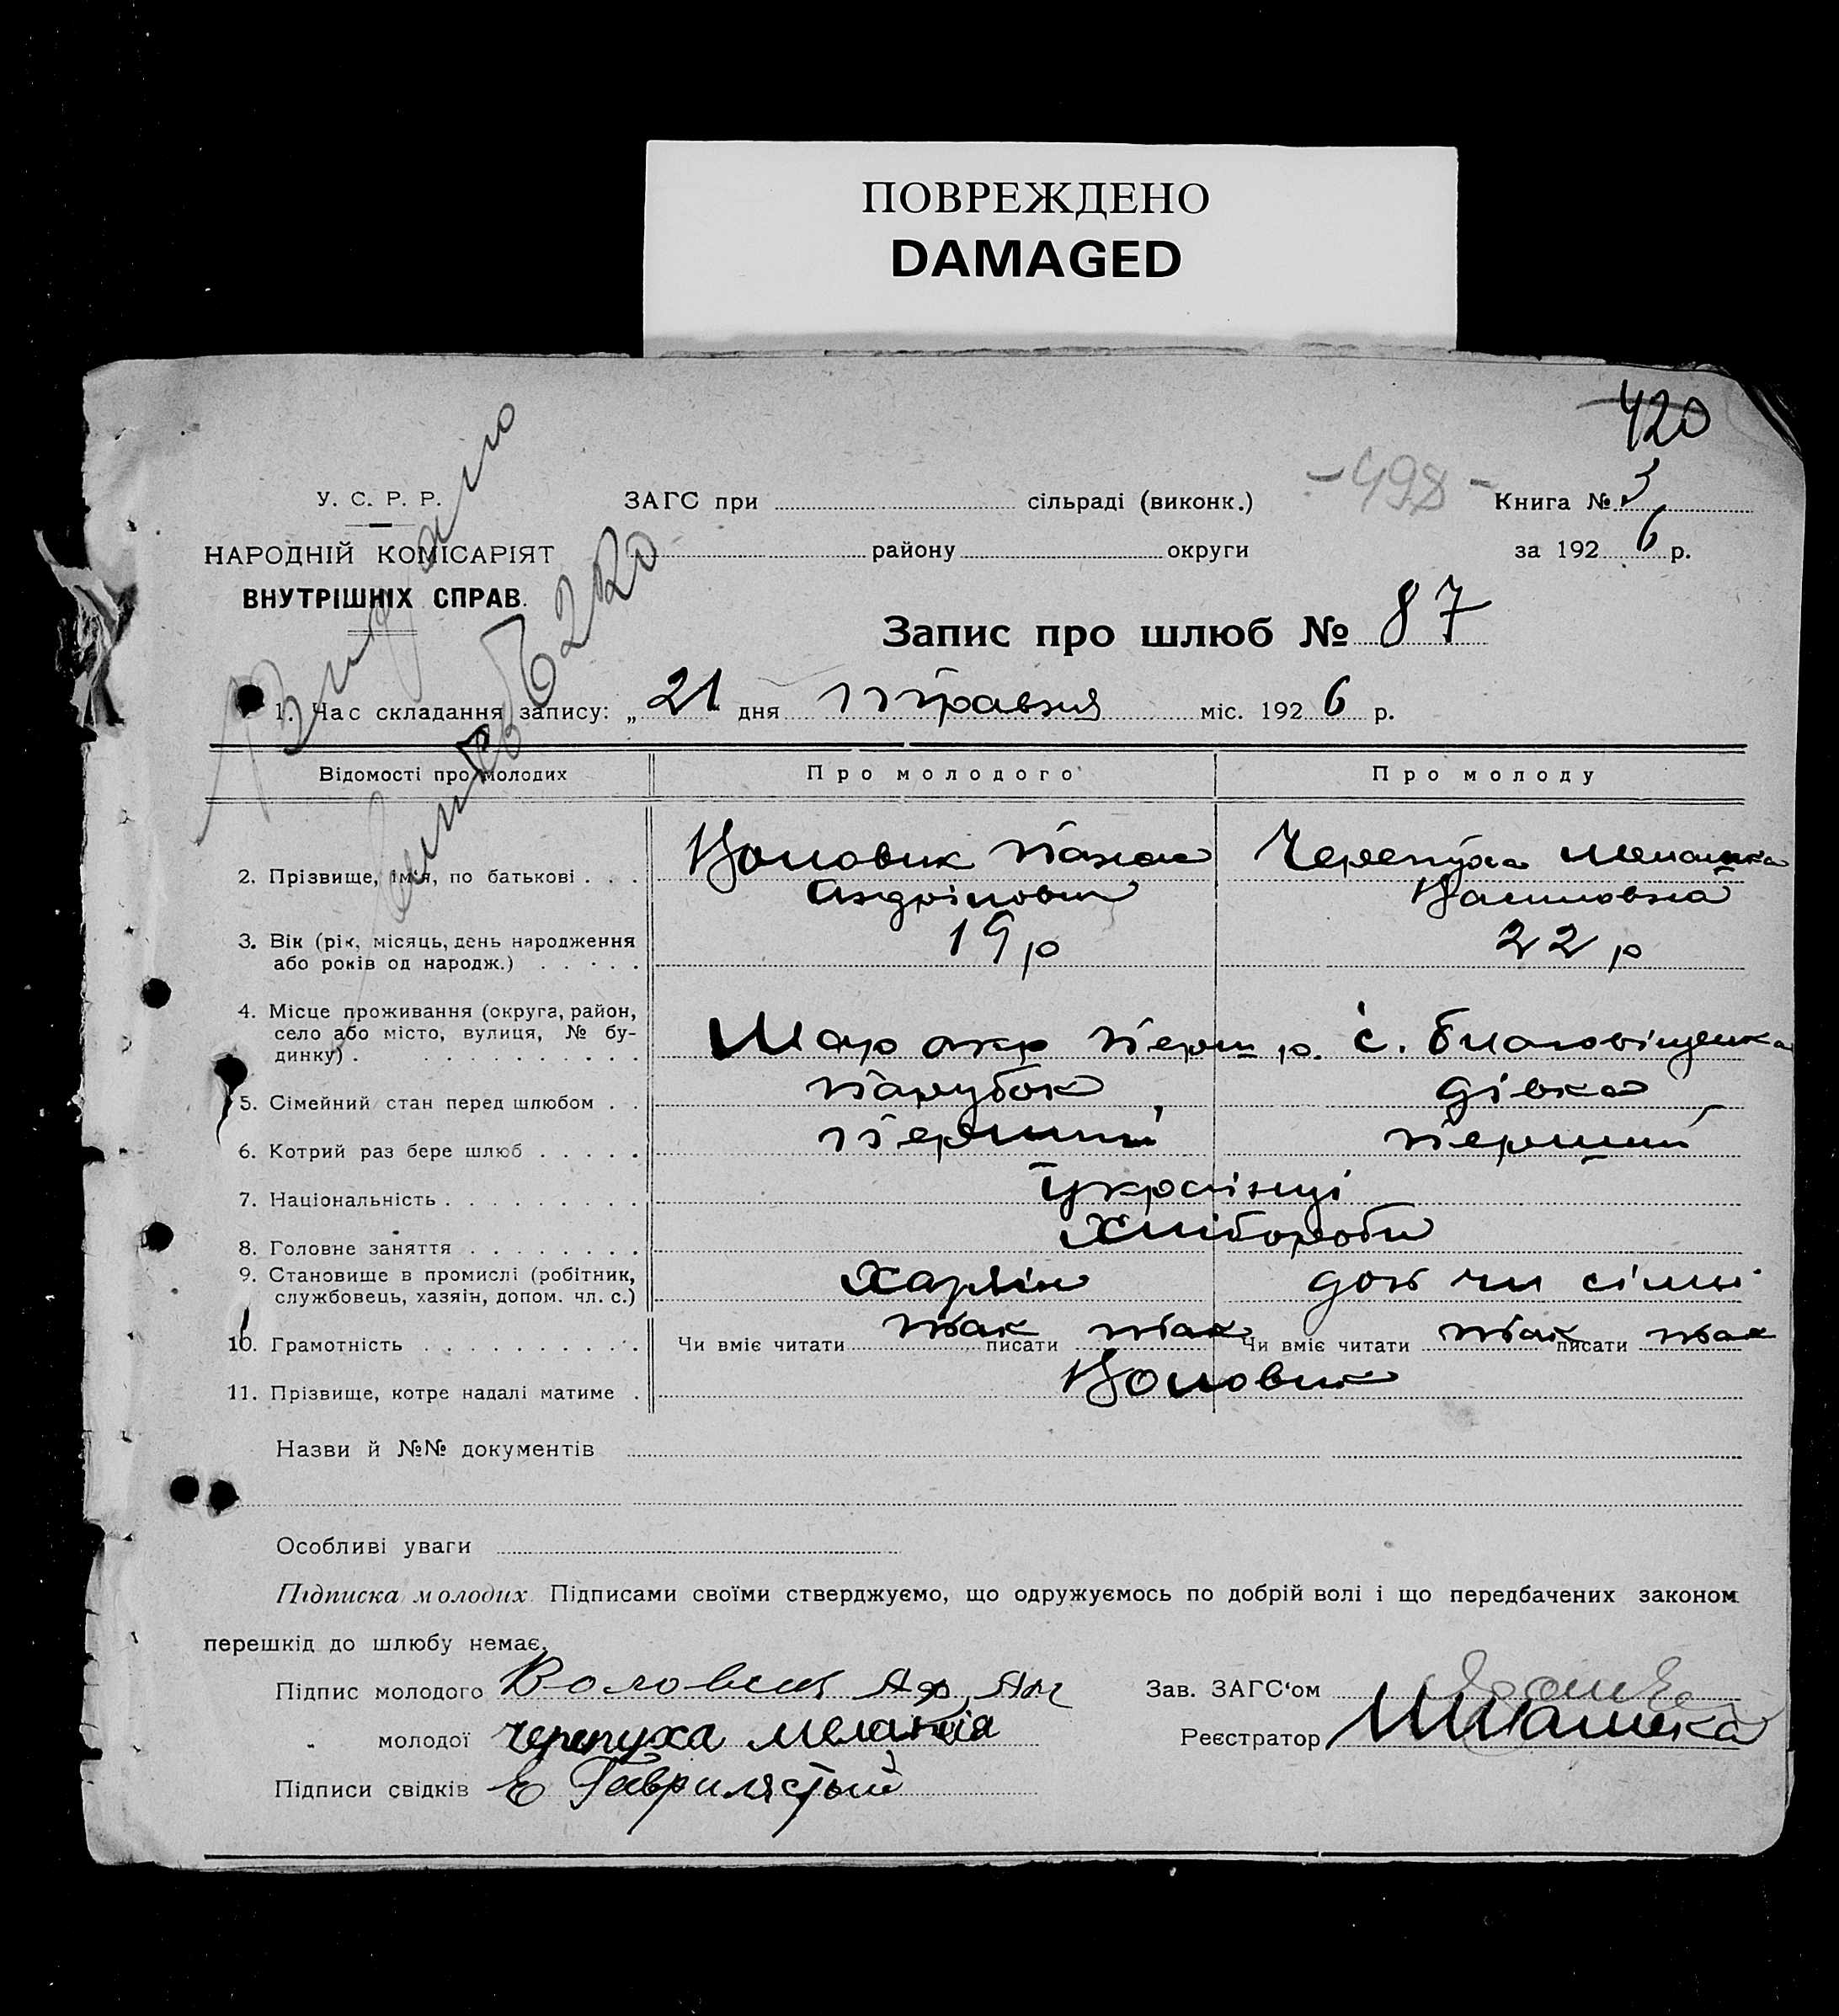 ПОВРЕЖДЕНО
DAMAGED
420
-498-
У. С. Р. Р.
НАРОДНІЙ КОМІСАРІЯТ
ВНУТРІШНІХ СПРАВ.
Видано
6220
ЗАГС при сільраді (виконк.)
району округи
Книга № 3
за 1926 р.
Запис про шлюб № 87
1. Час складання запису: „21 дня травня міс. 1926 р.
Відомості про молодих Про молодого Про молоду
2. Прізвище, ім'я, по батькові . . . Воловик Панас Черепуха Меланка
Андріпович Василовна
3. Вік (рік, місяць, день народження
або років од народж.) . . . . . 19 р 22 р
4. Місце проживання (округа, район,
село або місто, вулиця, № бу-
динку) . . . . . . . . . . Шар окр Перш р. с. Благовіщенка
5. Сімейний стан перед шлюбом . . парубок дівка
6. Котрий раз бере шлюб . . . . . перший перший
7. Національність . . . . . . . . . Українці
8. Головне заняття . . . . . . . . Хлібороби
9. Становище в промислі (робітник,
службовець, хазяін, допом. чл. с.) Хазяін доп чл сімі
10. Грамотність . . . . . . . . . . Чи вміє читати так писати так Чи вміє читати так писати так
11. Прізвище, котре надалі матиме . Воловик
Назви й №№ документів
Особливі уваги
Підписка молодих. Підписами своїми стверджуємо, що одружуємось по добрій волі і що передбачених законом
перешкід до шлюбу немає.
Підпис молодого Воловик Зав. ЗАГС'ом
молодої Черепуха Меланія Реєстратор
Підписи свідків Е Гаврилястый